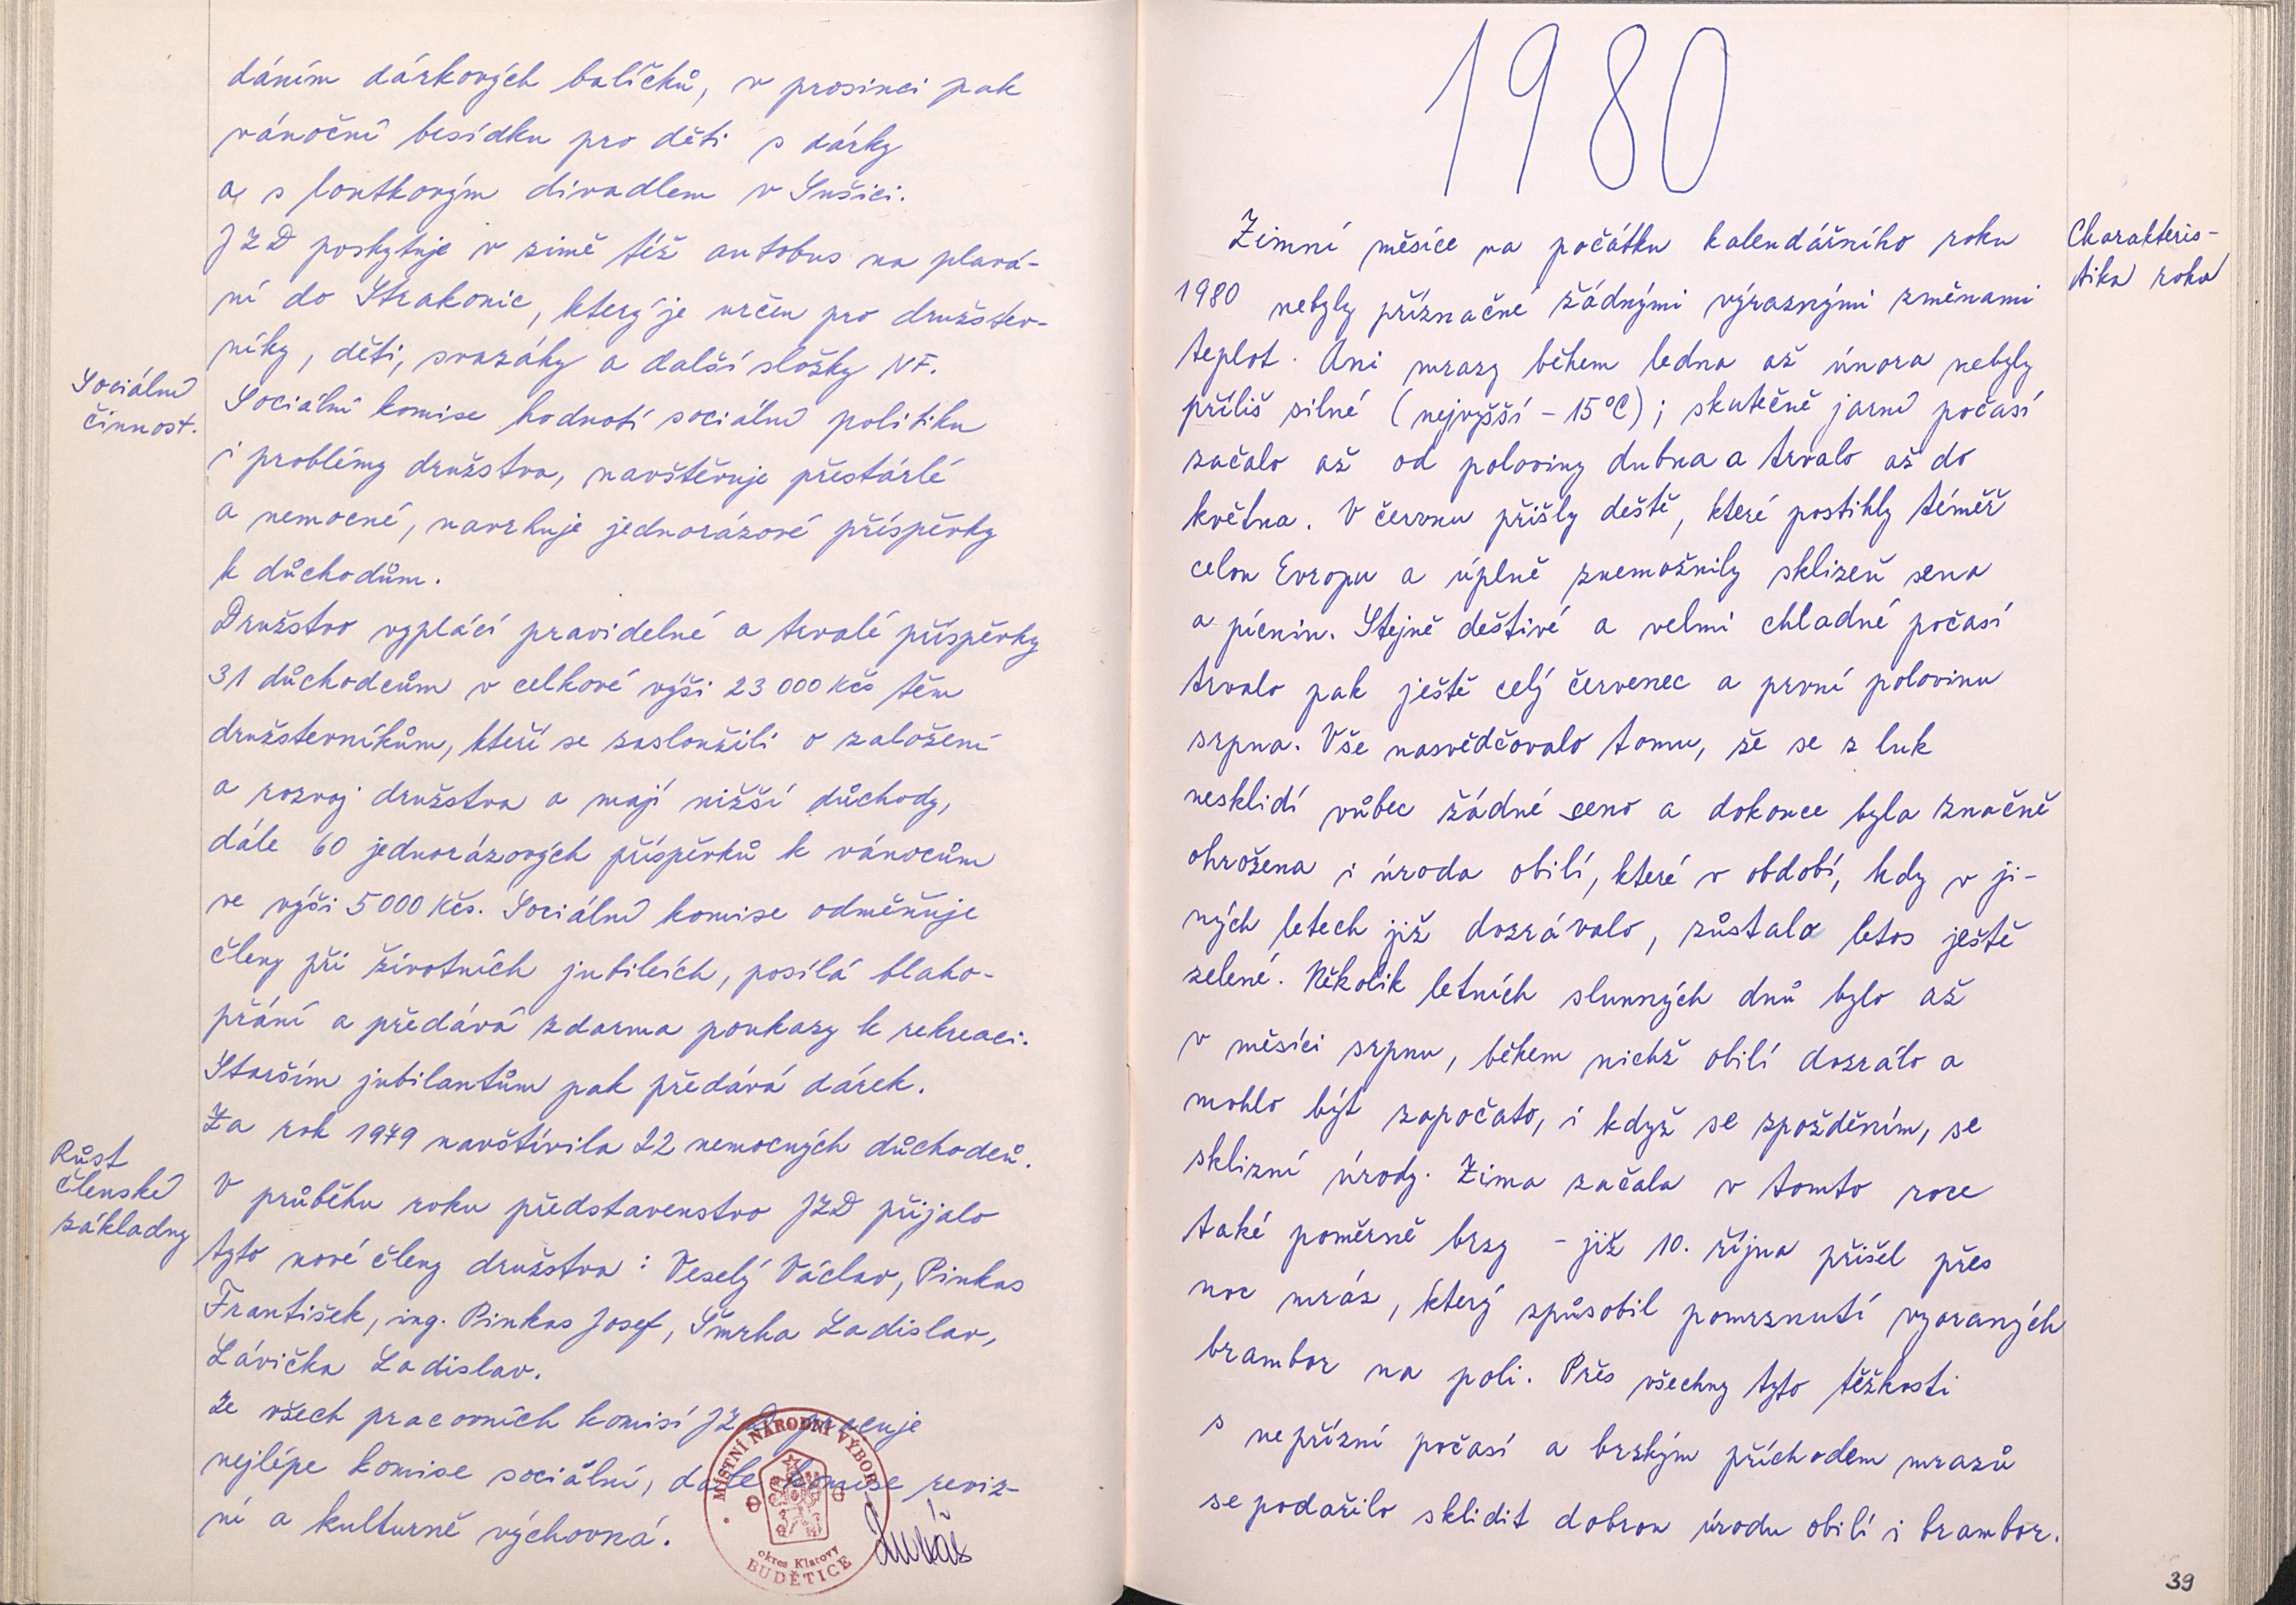 dáním dárkových balíčků, v prosinci pak
vánoční besídku pro děti s dárky
a s loutkovým divadlem v Sušici.
JZD poskytuje v zimě též autobus na plavá-
ní do Strakonic, který je určen pro družstev-
níky, děti, svazáky a další složky NF.
Sociální
činnost.
Sociální komise hodnotí sociální politiku
i problémy družstva, navštěvuje přestárlé
a nemocné, navrhuje jednorázové příspěvky
k důchodům.
Družstvo vyplácí pravidelné a trvalé příspěvky
31 důchodcům v celkové výši 23 000 Kčs těm
družsterníkům, kteří se zasloužili o založení
a rozvoj družstva a mají nižší důchody,
dále 60 jednorázových příspěvků k vánocům
ve výši 5 000 Kčs. Sociální komise odměňuje
členy při životních jubileích, posílá blaho-
přání a předává zdarma poukazy k rekreaci.
Starším jubilantům pak předává dárek.
Za rok 1979 navštívila 22 nemocných důchodců.
Růst
členské
základny
V průběhu roku představenstvo JZD přijalo
tyto nové členy družstva: Veselý Václav, Pinkas
František, ing. Pinkas Josef, Šmrha Ladislav,
Lávička Ladislav.
Ze všech pracovních komisí JZD pracuje
nejlépe komise sociální, dále komise reviz-
ní a kulturně výchovná.
MÍSTNÍ NÁRODNÍ VÝBOR
okres Klatovy
BUDĚTICE
1980
Charakteris-
tika roku
Zimní měsíce na počátku kalendářního roku
1980 nebyly příznačné žádnými výraznými změnami
teplot. Ani mrazy během ledna až února nebyly
příliš silné (nejvyšší - 15°C); skutečně jarní počasí
začalo až od poloviny dubna a trvalo až do
května. V červnu přišly deště, které postihly téměř
celou Evropu a úplně znemožnily sklizeň sena
a pícnin. Stejně deštivé a velmi chladné počasí
trvalo pak ještě celý červenec a první polovinu
srpna. Vše nasvědčovalo tomu, že se z luk
nesklidí vůbec žádné seno a dokonce byla značně
ohrožena i úroda obilí, které v období, kdy v ji-
ných letech již dozrávalo, zůstalo letos ještě
zelené. Několik letních slunných dnů bylo až
v měsíci srpnu, během nichž obilí dozrálo a
mohlo být započato, i když se zpožděním, se
sklizní úrody. Zima začala v tomto roce
také poměrně brzy - již 10. října přišel přes
noc mráz, který způsobil pomrznutí vyoraných
brambor na poli. Přes všechny tyto těžkosti
s nepřízní počasí a brzkým příchodem mrazů
se podařilo sklidit dobrou úrodu obilí i brambor.
39